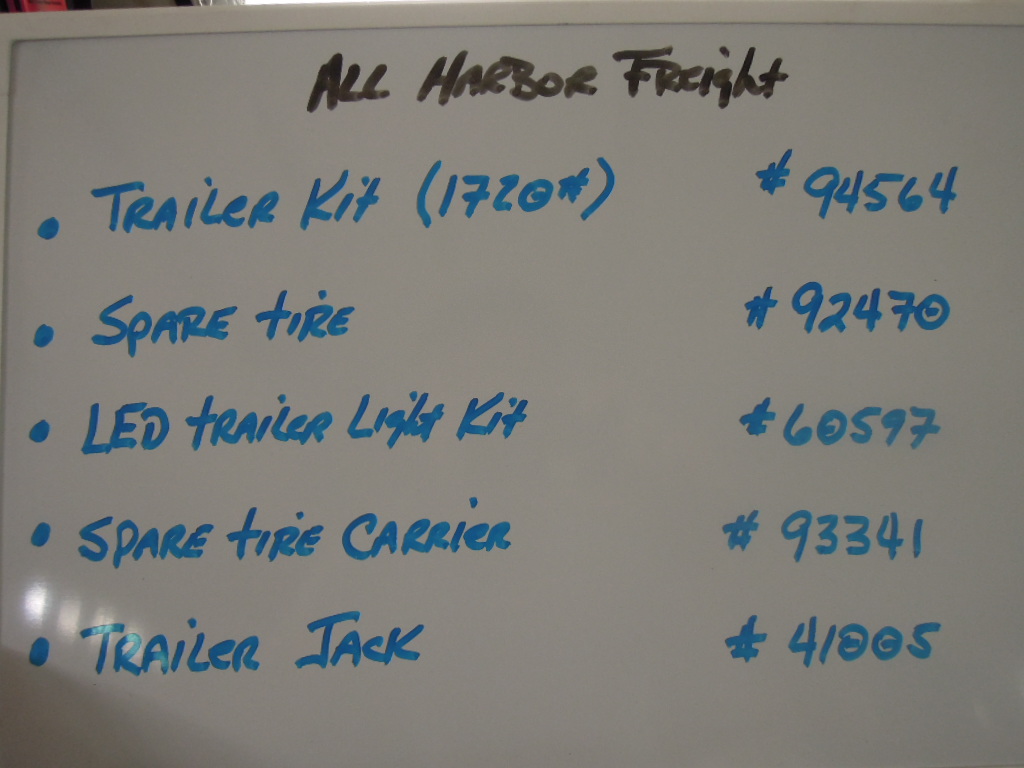 ALL HARBOR FREIGHT
• TRAILER KIT (1720#) # 94564
• SPARE TIRE # 92470
• LED TRAILER LIGHT KIT # 60597
• SPARE TIRE CARRIER # 93341
• TRAILER JACK # 41005